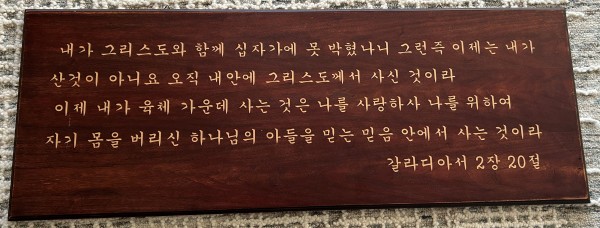 내가 그리스도와 함께 십자가에 못 박혔나니 그런즉 이제는 내가
산것이 아니요 오직 내안에 그리스도께서 사신 것이라
이제 내가 육체 가운데 사는 것은 나를 사랑하사 나를 위하여
자기 몸을 버리신 하나님의 아들을 믿는 믿음 안에서 사는 것이라
갈라디아서 2장 20절